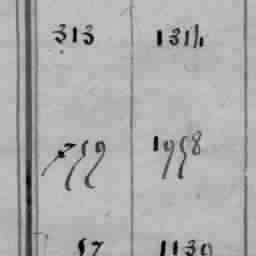 313 1314
759 1958
57 1139